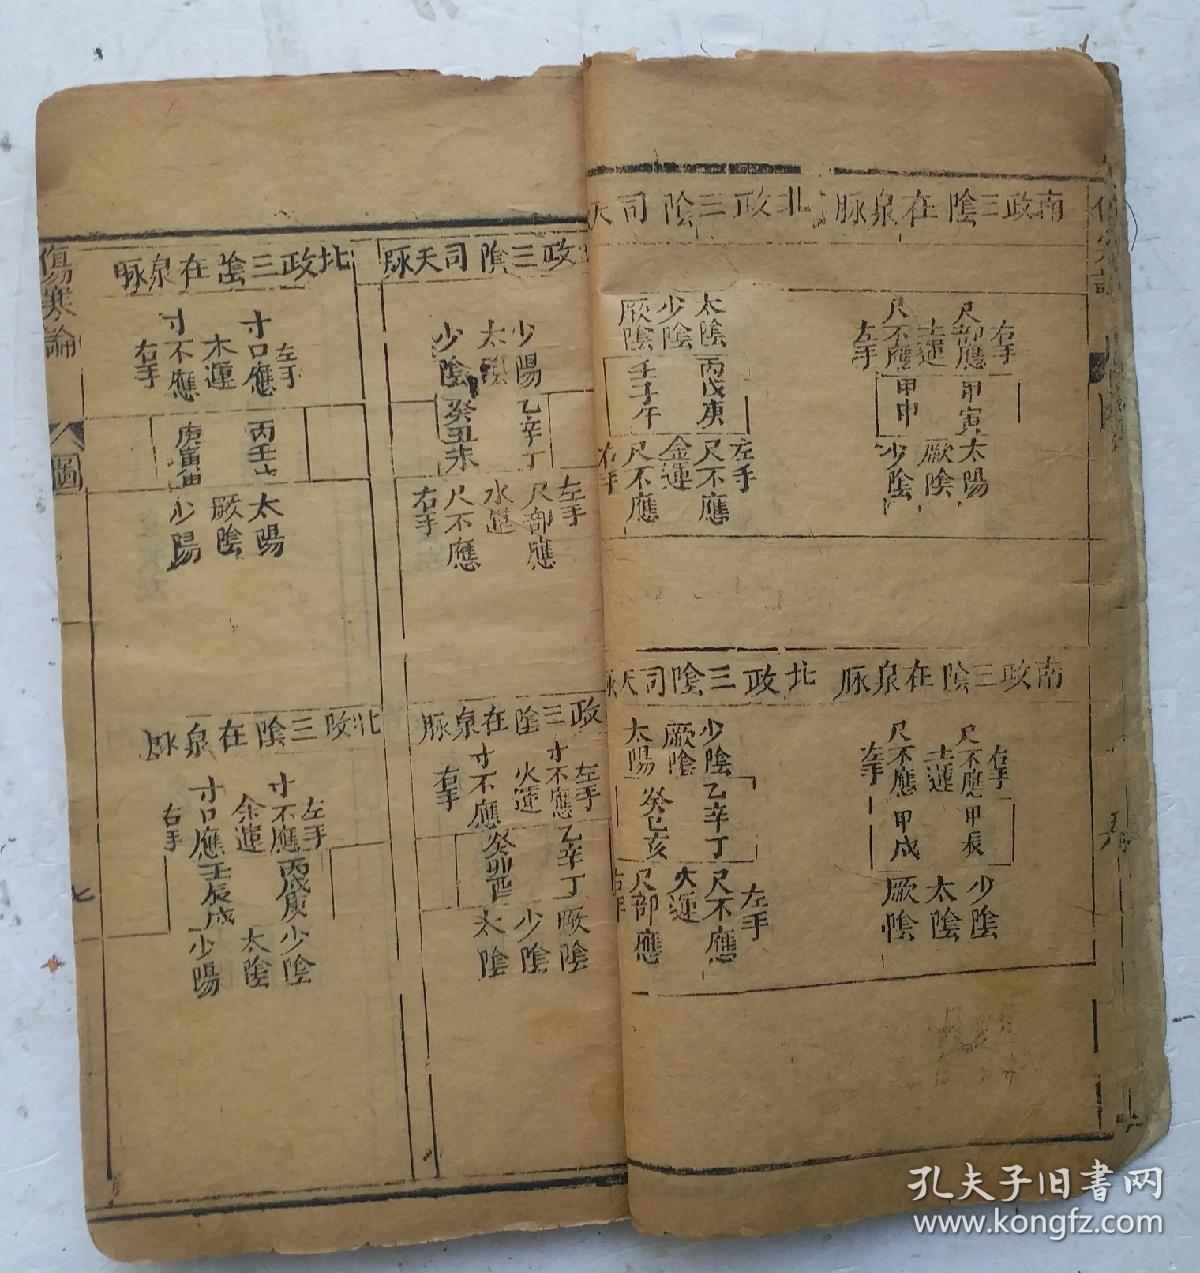 南政三陰在泉脉
北政三陰司天
右手
尺部應
土運
尺不應
左手
甲寅
甲申
太陽
厥陰
少陰
太陰
少陰
厥陰
丙戊庚
壬子午
左手
尺不應
金運
尺不應
右手
南政三陰在泉脉
北政三陰司天脉
右手
尺不應
土運
尺不應
左手
甲辰
甲戌
少陰
太陰
厥陰
少陰
厥陰
太陽
乙辛丁
癸巳亥
左手
尺不應
火運
尺部應
右手
政三陰司天脉
少陽
太陽
少陰
乙辛丁
癸丑未
左手
尺部應
水運
尺不應
右手
政三陰在泉脉
左手
寸不應
火運
寸不應
右手
乙辛丁
癸卯酉
厥陰
少陰
太陰
北政三陰在泉脉
左手
寸口應
木運
寸不應
右手
丙壬戊
庚寅申
太陽
厥陰
少陽
北政三陰在泉脉
左手
寸不應
金運
寸口應
右手
丙戊庚
壬辰戌
少陰
太陰
少陽
傷寒論
圖
七
孔夫子旧书网
www.kongfz.com